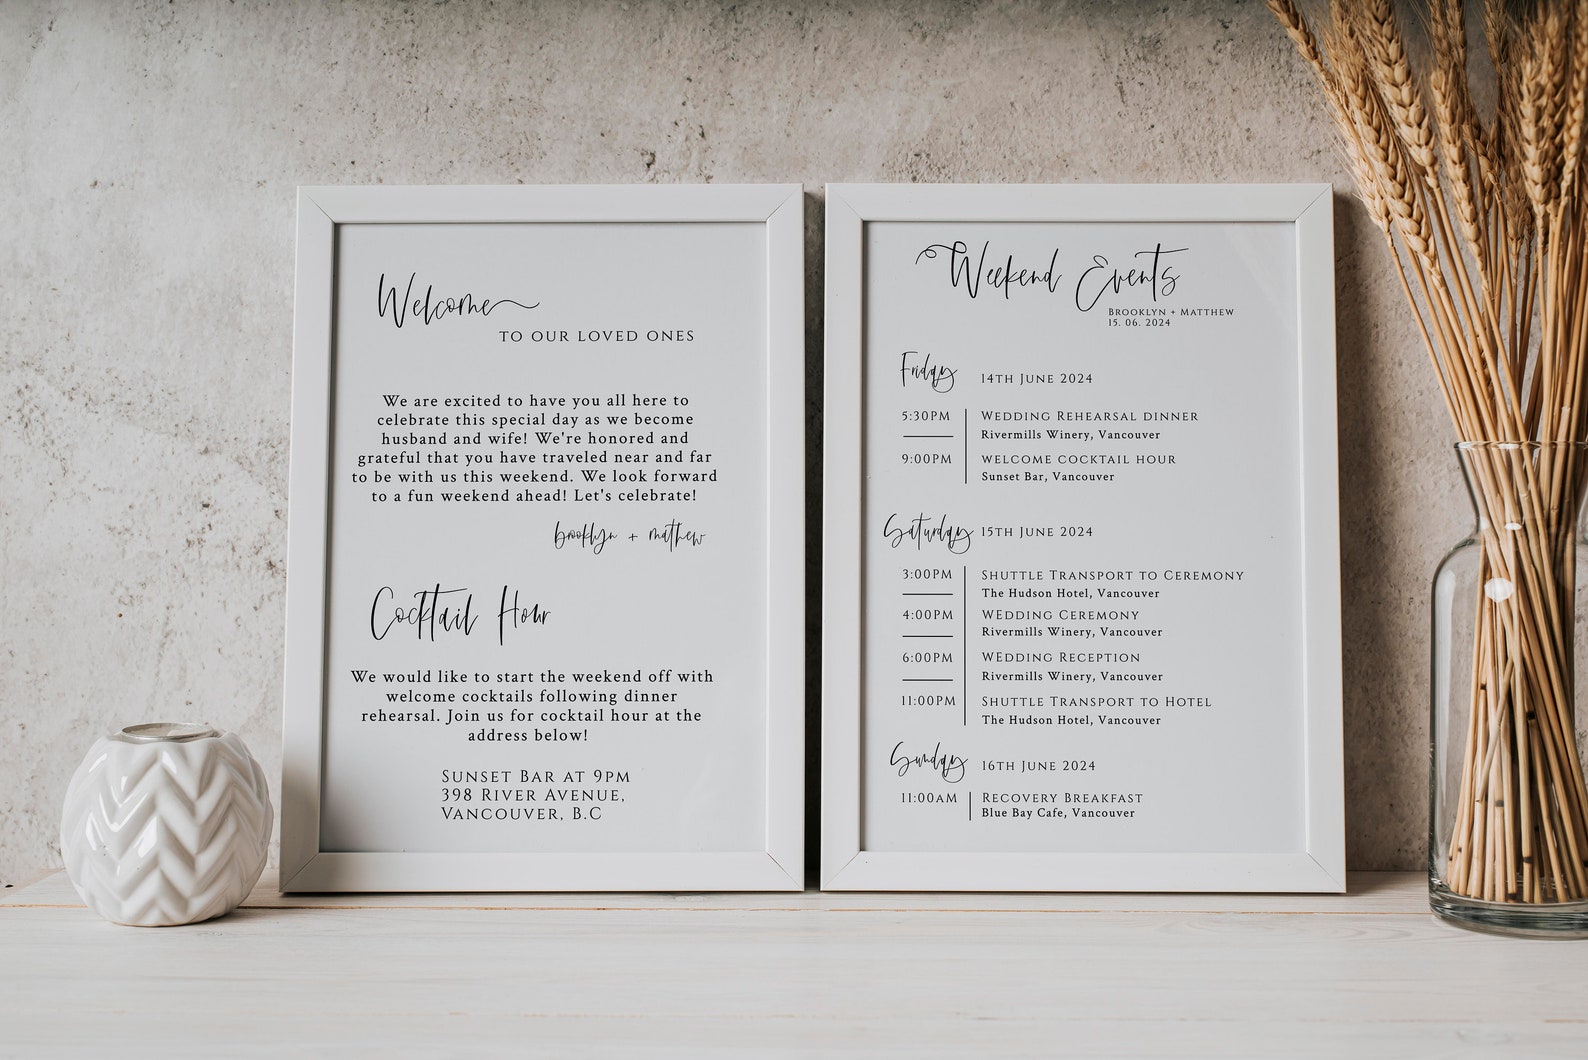 Welcome
TO OUR LOVED ONES
We are excited to have you all here to
celebrate this special day as we become
husband and wife! We're honored and
grateful that you have traveled near and far
to be with us this weekend. We look forward
to a fun weekend ahead! Let's celebrate!
brooklyn + matthew
Cocktail Hour
We would like to start the weekend off with
welcome cocktails following dinner
rehearsal. Join us for cocktail hour at the
address below!
Sunset Bar at 9pm
398 River Avenue,
Vancouver, B.C
Weekend Events
Brooklyn + Matthew
15. 06. 2024
Friday 14th June 2024
5:30PM Wedding Rehearsal dinner
Rivermills Winery, Vancouver
9:00PM welcome cocktail hour
Sunset Bar, Vancouver
Saturday 15th June 2024
3:00PM Shuttle Transport to Ceremony
The Hudson Hotel, Vancouver
4:00PM WEdding Ceremony
Rivermills Winery, Vancouver
6:00PM WEdding Reception
Rivermills Winery, Vancouver
11:00PM Shuttle Transport to Hotel
The Hudson Hotel, Vancouver
Sunday 16th June 2024
11:00AM Recovery Breakfast
Blue Bay Cafe, Vancouver